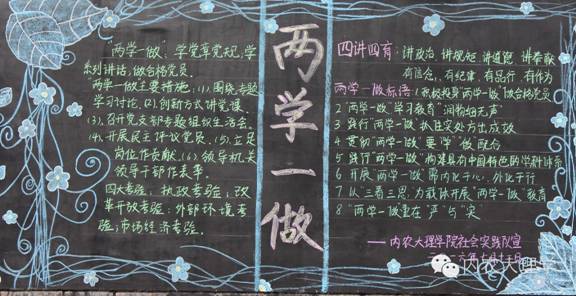 "两学一做": 学党章党规,学
系列讲话,做合格党员。
两学一做主要措施: (1).围绕专题
学习讨论. (2).创新方式讲党课.
(3).召开党支部专题组织生活会。
(4).开展民主评议党员. (5).立足
岗位作贡献. (6).领导机关
领导干部作表率.
四大考验: 执政考验;改
革开放考验;外部环境考
验;市场经济考验.
两学一做
四讲四有: 讲政治,讲规矩,讲道德,讲奉献
有信念,有纪律,有品行,有作为
两学一做标语: 1积极投身"两学一做"做合格党员
2 "两学一做"学习教育"润物细无声"
3 践行"两学一做"从住实处方出成效
4 贯彻"两学一做"要"学""做"融合
5 践行"两学一做"构建具有中国特色的学科体系
6 开展"两学一做"需内化于心,外化于行
7 从"三看三思"为载体开展"两学一做"教育
8 "两学一做重在"严"与"实"
——内农大理学院社会实践队宣
二〇一六年七月十
内农大理学